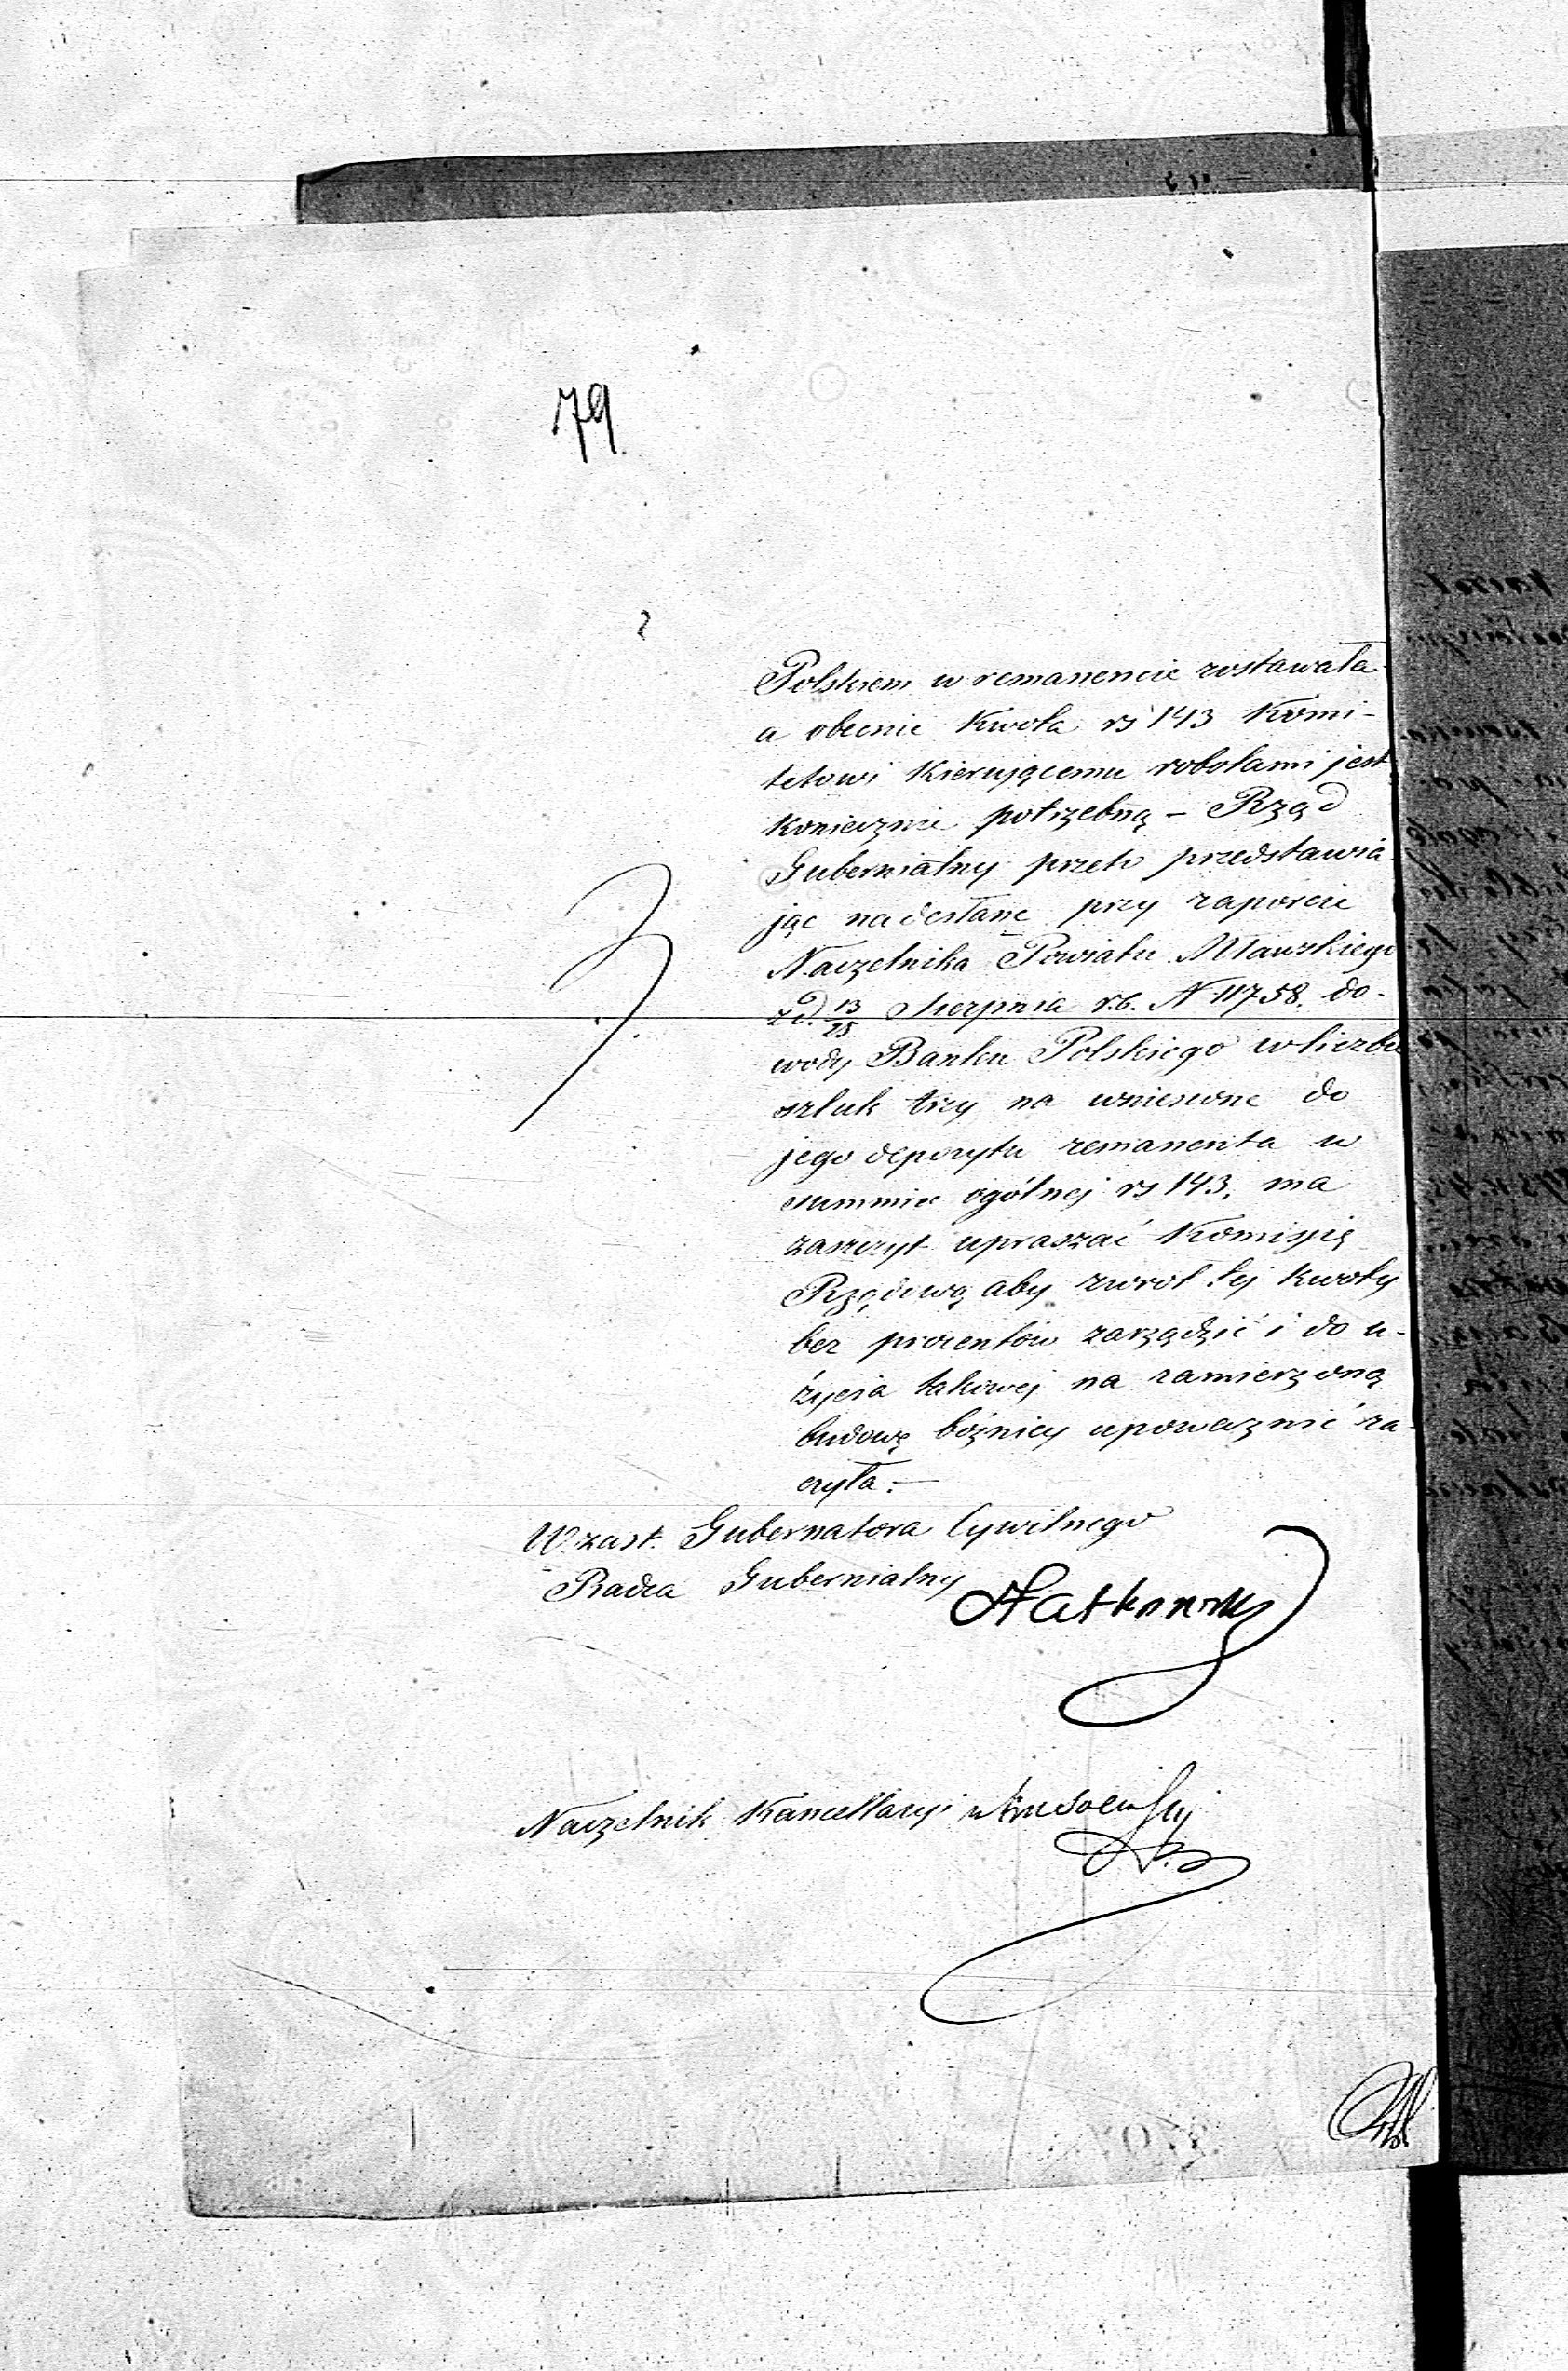 79
Polskiem w remanencie zostawała
a obecnie kwota rs 143 Komi-
tetowi kierującemu robotami jest
koniecznie potrzebną – Rząd
Gubernialny przeto przedstawia
jąc nadesłane przy raporcie
Naczelnika Powiatu Mławskiego
z d. 13/25 Sierpnia r.b. N 11758. do-
wody Banku Polskiego w liczbie
sztuk trzy na wniesione do
jego depozytu remanenta w
summie ogólnej rs 143, ma
zaszczyt upraszać Komissię
Rządową aby zwrot tej kwoty
bez procentów zarządzić i do u-
życia takowej na zamierzoną
budowę bóżnicy upoważnić ra-
czyła.–
W zast. Gubernatora Cywilnego
Radca Gubernialny
Naczelnik Kancellaryi